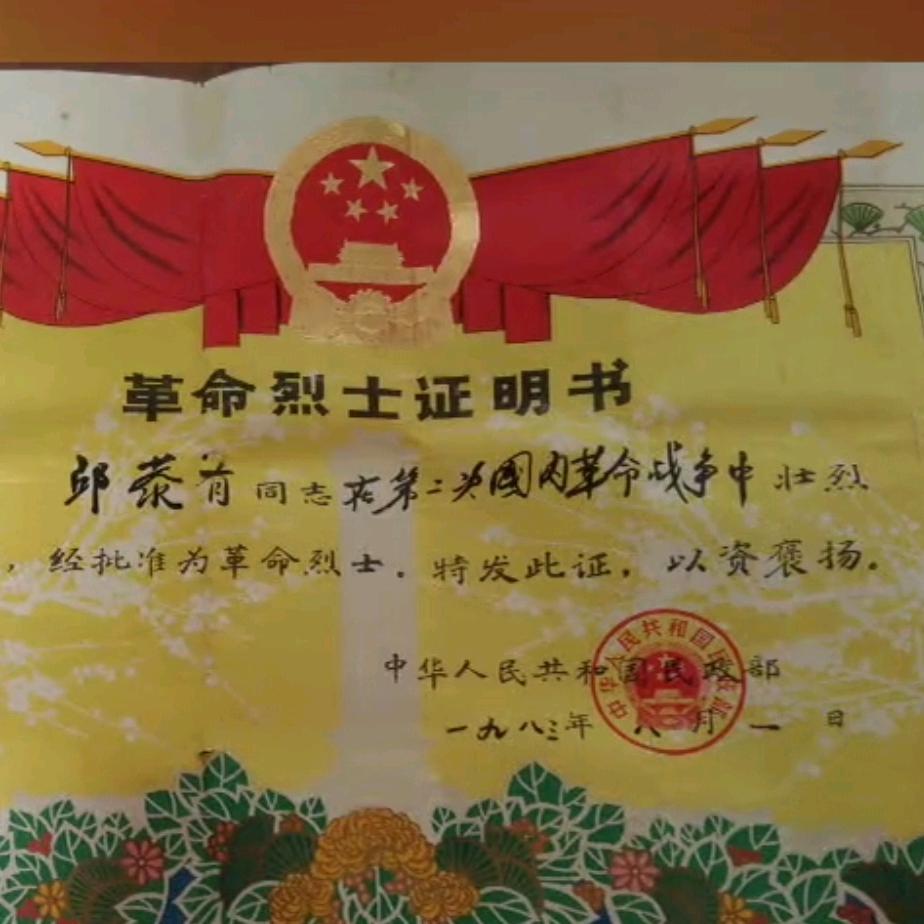 革命烈士证明书
邱泰肯同志在第二次國内革命战争中壮烈
，经批准为革命烈士。特发此证，以资褒扬。
中华人民共和国民政部
一九八三年 八月 一 日
中华人民共和国民政部